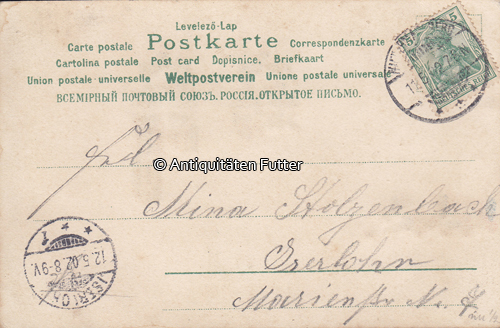 Levelező-Lap
Carte postale Postkarte Correspondenzkarte
Cartolina postale Post card Dopisnice. Briefkaart
Union postale universelle Weltpostverein Unione postale universale
ВСЕМІРНЫЙ ПОЧТОВЫЙ СОЮЗЪ. РОССІЯ. ОТКРЫТОЕ ПИСЬМО.
5
© Antiquitäten Futter
Mina Stolzenbach
Iserlohn
Marienstr No.
12.5.02.8-9V.